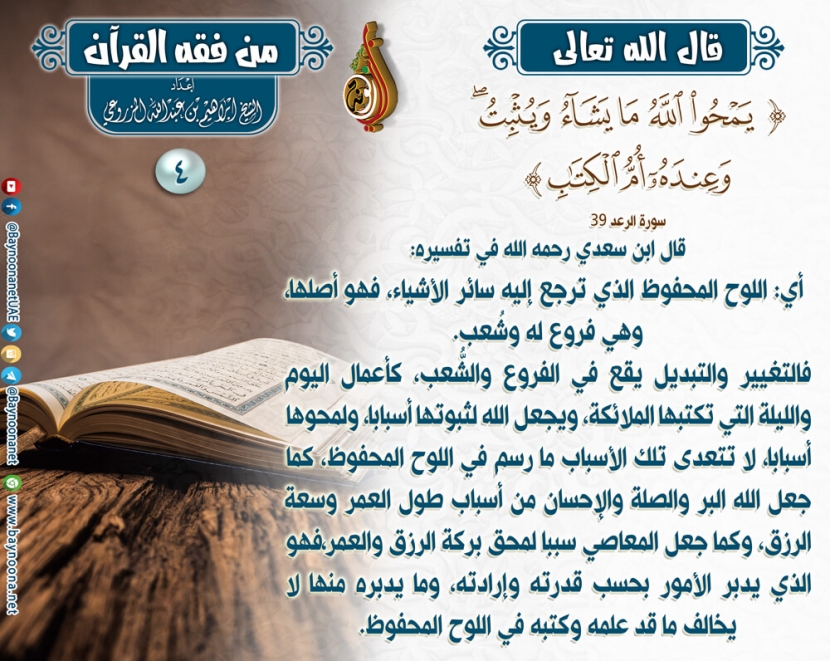 قال الله تعالى
﴿ يَمْحُوا۟ ٱللَّهُ مَا يَشَآءُ وَيُثْبِتُ ۖ
وَعِندَهُۥٓ أُمُّ ٱلْكِتَٰبِ ﴾
سورة الرعد 39
قال ابن سعدي رحمه الله في تفسيره:
أي: اللوح المحفوظ الذي ترجع إليه سائر الأشياء، فهو أصلها،
وهي فروع له وشُعب.
فالتغيير والتبديل يقع في الفروع والشُّعب، كأعمال اليوم
والليلة التي تكتبها الملائكة، ويجعل الله لثبوتها أسبابا، ولمحوها
أسبابا، لا تتعدى تلك الأسباب ما رسم في اللوح المحفوظ، كما
جعل الله البر والصلة والإحسان من أسباب طول العمر وسعة
الرزق، وكما جعل المعاصي سببا لمحق بركة الرزق والعمر،فهو
الذي يدبر الأمور بحسب قدرته وإرادته، وما يدبره منها لا
يخالف ما قد علمه وكتبه في اللوح المحفوظ.
من فقه القرآن
إعداد
الشيخ إبراهيم بن عبدالله المزروعي
٤
@BaynoonanetUAE
@Baynoonanet
www.baynoona.net